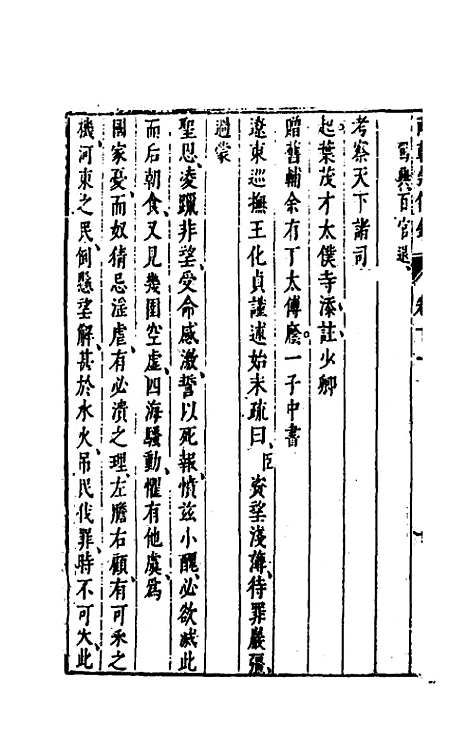 駕興百官退
考察天下諸司
起葉茂才太僕寺添註少卿
贈舊輔余有丁太傅廕一子中書
遼東巡撫王化貞謹述始末疏曰臣資望淺薄待罪嚴疆
過蒙
聖恩凌躐非望受命感激誓以死報憤茲小醜必欲滅此
而后朝食又見幾園空虛四海騷動懼有他虞為
國家憂而奴猜忌淫虐有必潰之理左瞻右顧有可乘之
機河東之民倒懸望解甚於水火吊民伐罪時不可失此